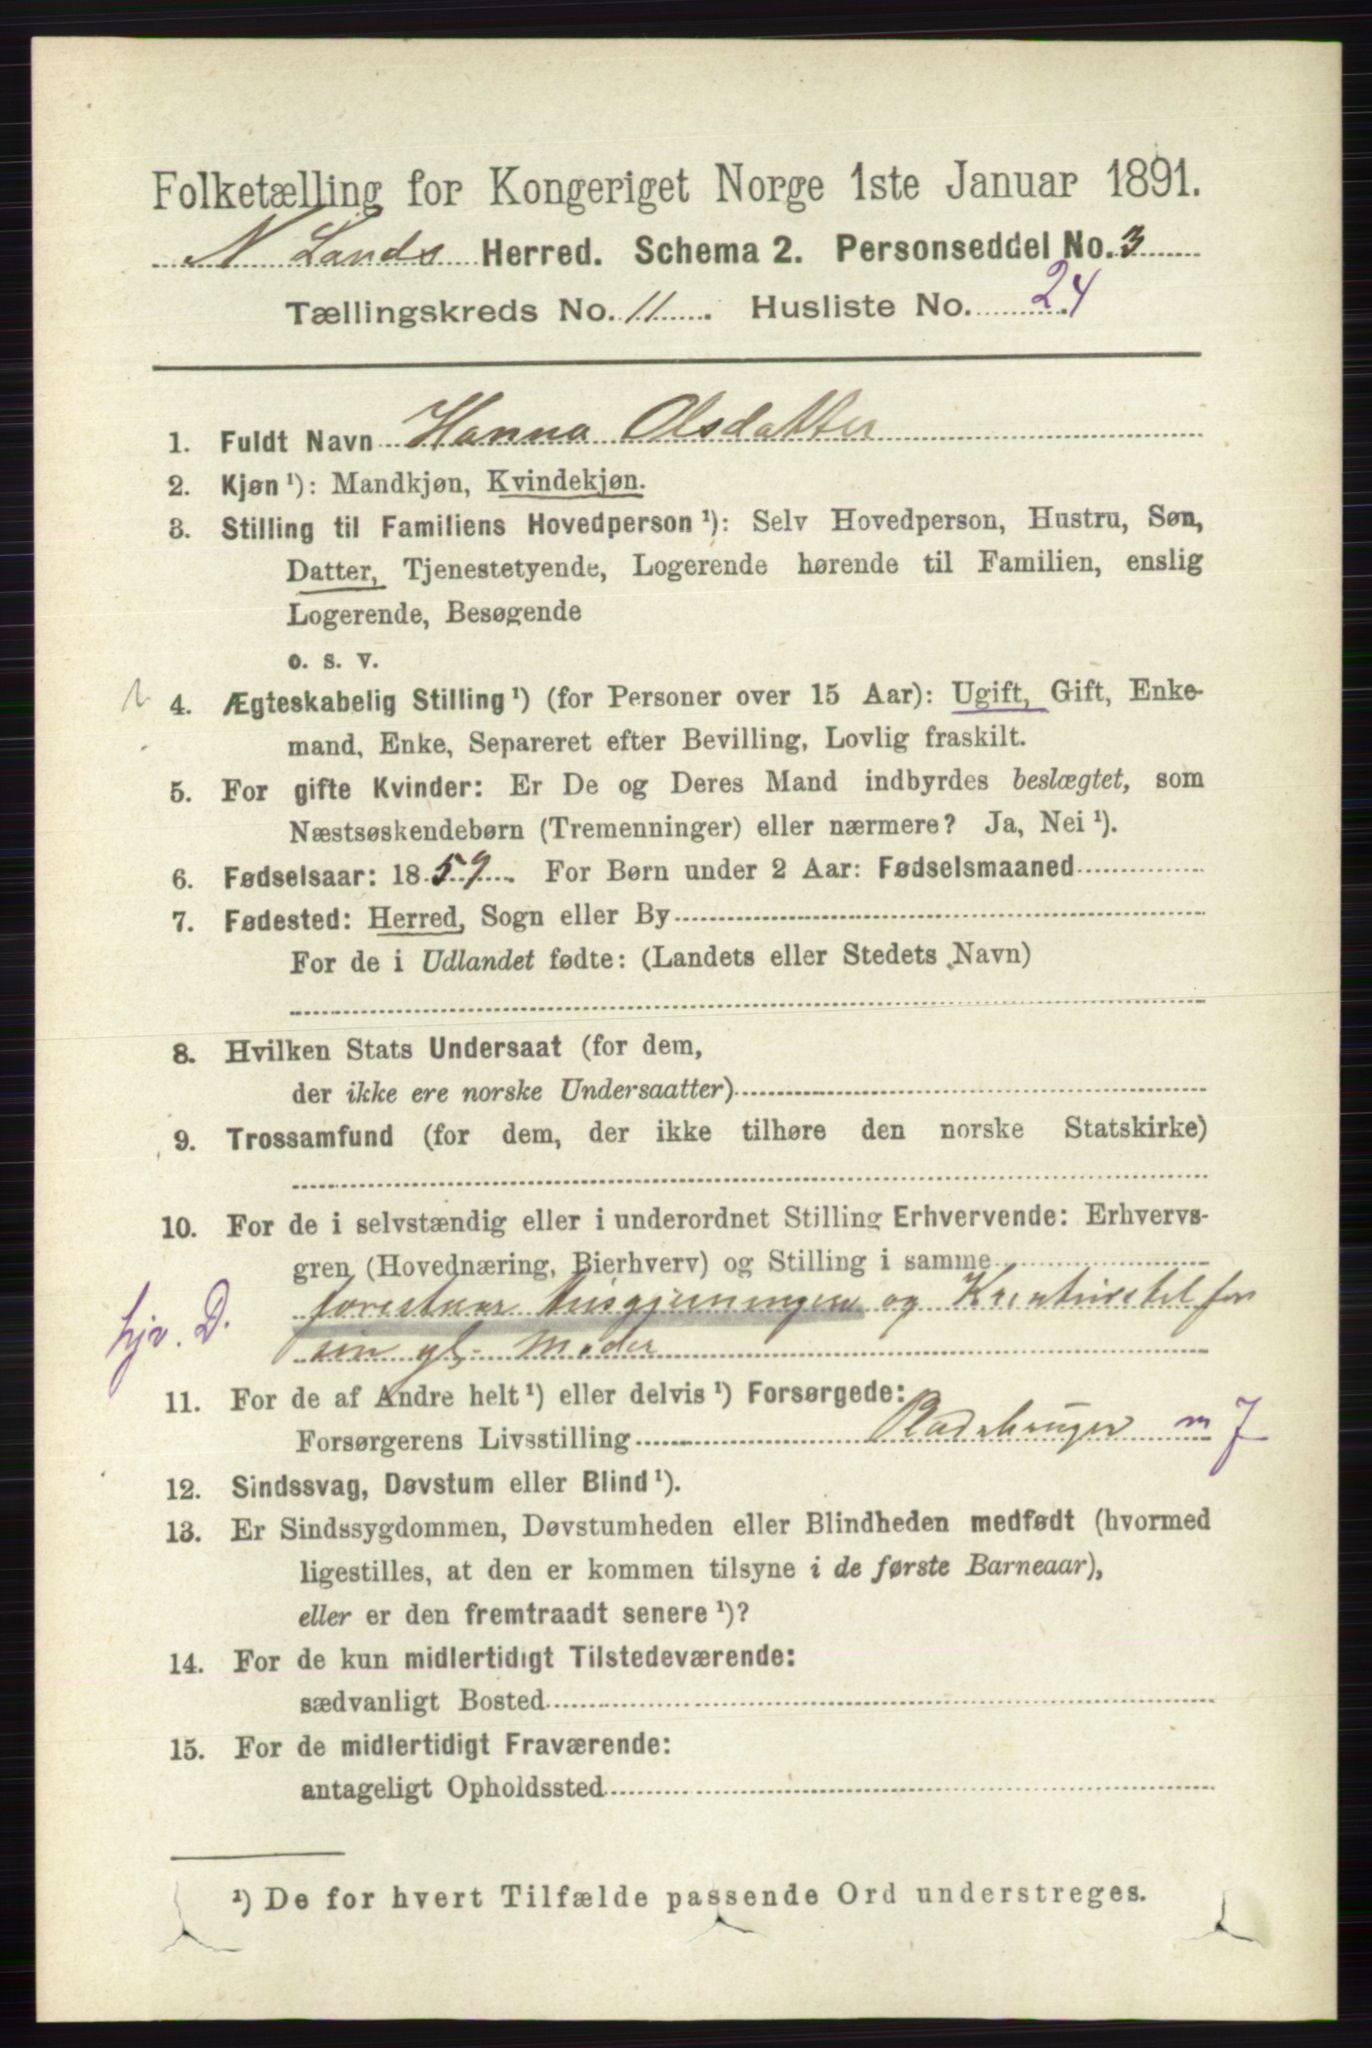 Folketælling for Kongeriget Norge 1ste Januar 1891.
N Lands Herred. Schema 2. Personseddel No. 3
Tællingskreds No. 11. Husliste No. 24.
1. Fuldt Navn Hanna Olsdatter
2. Kjøn ¹): Mandkjøn, Kvindekjøn.
3. Stilling til Familiens Hovedperson ¹): Selv Hovedperson, Hustru, Søn,
Datter, Tjenestetyende, Logerende hørende til Familien, enslig
Logerende, Besøgende
o. s. v.
4. Ægteskabelig Stilling ¹) (for Personer over 15 Aar): Ugift, Gift, Enke-
mand, Enke, Separeret efter Bevilling, Lovlig fraskilt.
5. For gifte Kvinder: Er De og Deres Mand indbyrdes beslægtet, som
Næstsøskendebørn (Tremenninger) eller nærmere? Ja, Nei ¹).
6. Fødselsaar: 1859. For Børn under 2 Aar: Fødselsmaaned
7. Fødested: Herred, Sogn eller By
For de i Udlandet fødte: (Landets eller Stedets Navn)
8. Hvilken Stats Undersaat (for dem,
der ikke ere norske Undersaatter)
9. Trossamfund (for dem, der ikke tilhøre den norske Statskirke)
10. For de i selvstændig eller i underordnet Stilling Erhvervende: Erhvervs-
gren (Hovednæring, Bierhverv) og Stilling i samme
forestaar Husgjerningen og Kreaturstel for
hjv. D.
sin gl. Moder
11. For de af Andre helt ¹) eller delvis ¹) Forsørgede:
Forsørgerens Livsstilling Pladsbruger m 7
12. Sindssvag, Døvstum eller Blind ¹).
13. Er Sindssygdommen, Døvstumheden eller Blindheden medfødt (hvormed
ligestilles, at den er kommen tilsyne i de første Barneaar),
eller er den fremtraadt senere ¹)?
14. For de kun midlertidigt Tilstedeværende:
sædvanligt Bosted
15. For de midlertidigt Fraværende:
antageligt Opholdssted
¹) De for hvert Tilfælde passende Ord understreges.